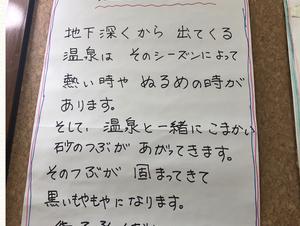 地下深くから 出てくる
温泉は そのシーズンによって
熱い時や ぬるめの時が
あります。
そして、温泉と一緒に こまかい
砂のつぶが あがってきます。
そのつぶが 固まってきて
黒いもやもやになります。